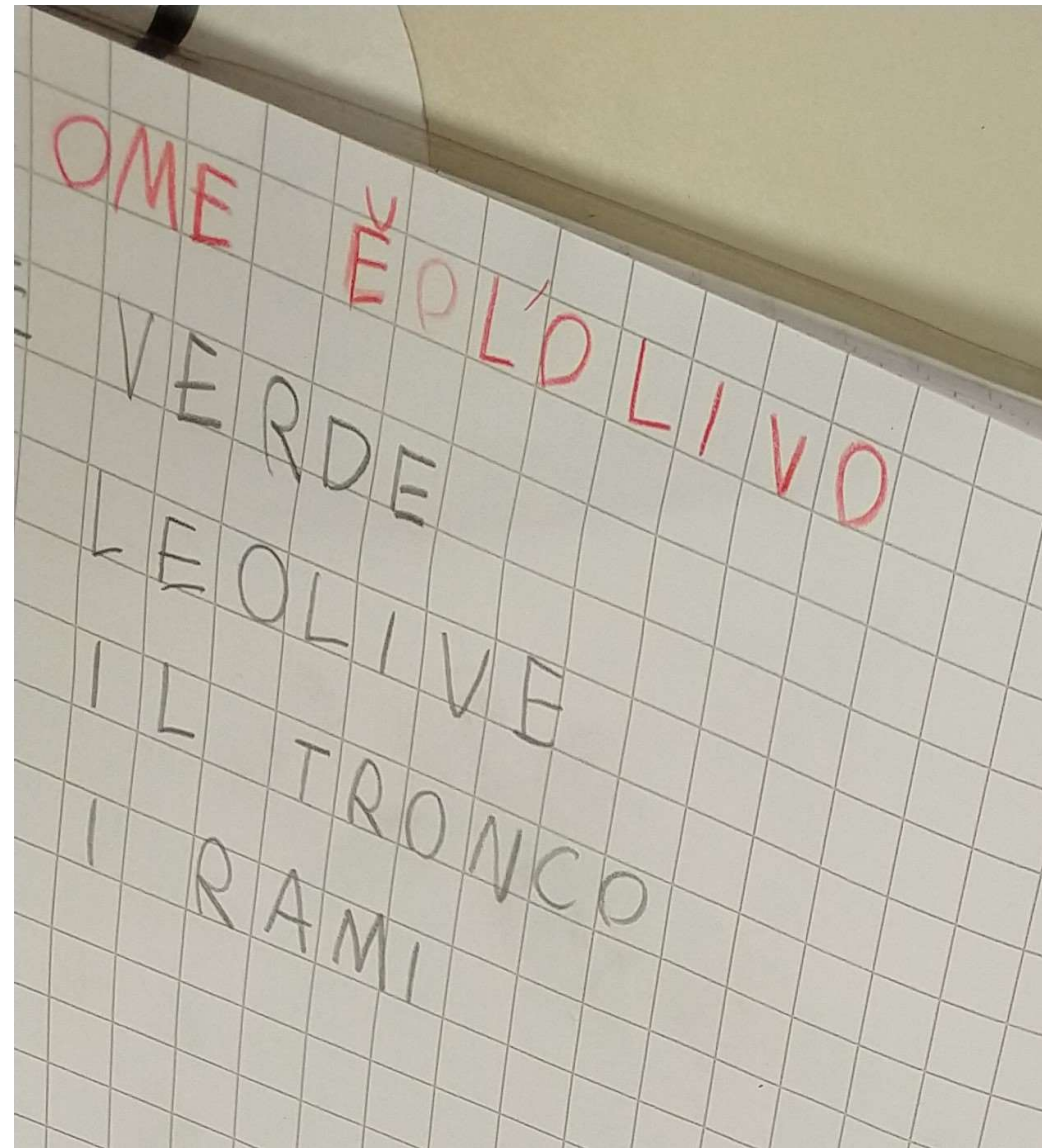 OME Ě L'OLIVO
E VERDE
LE OLIVE
IL TRONCO
I RAMI